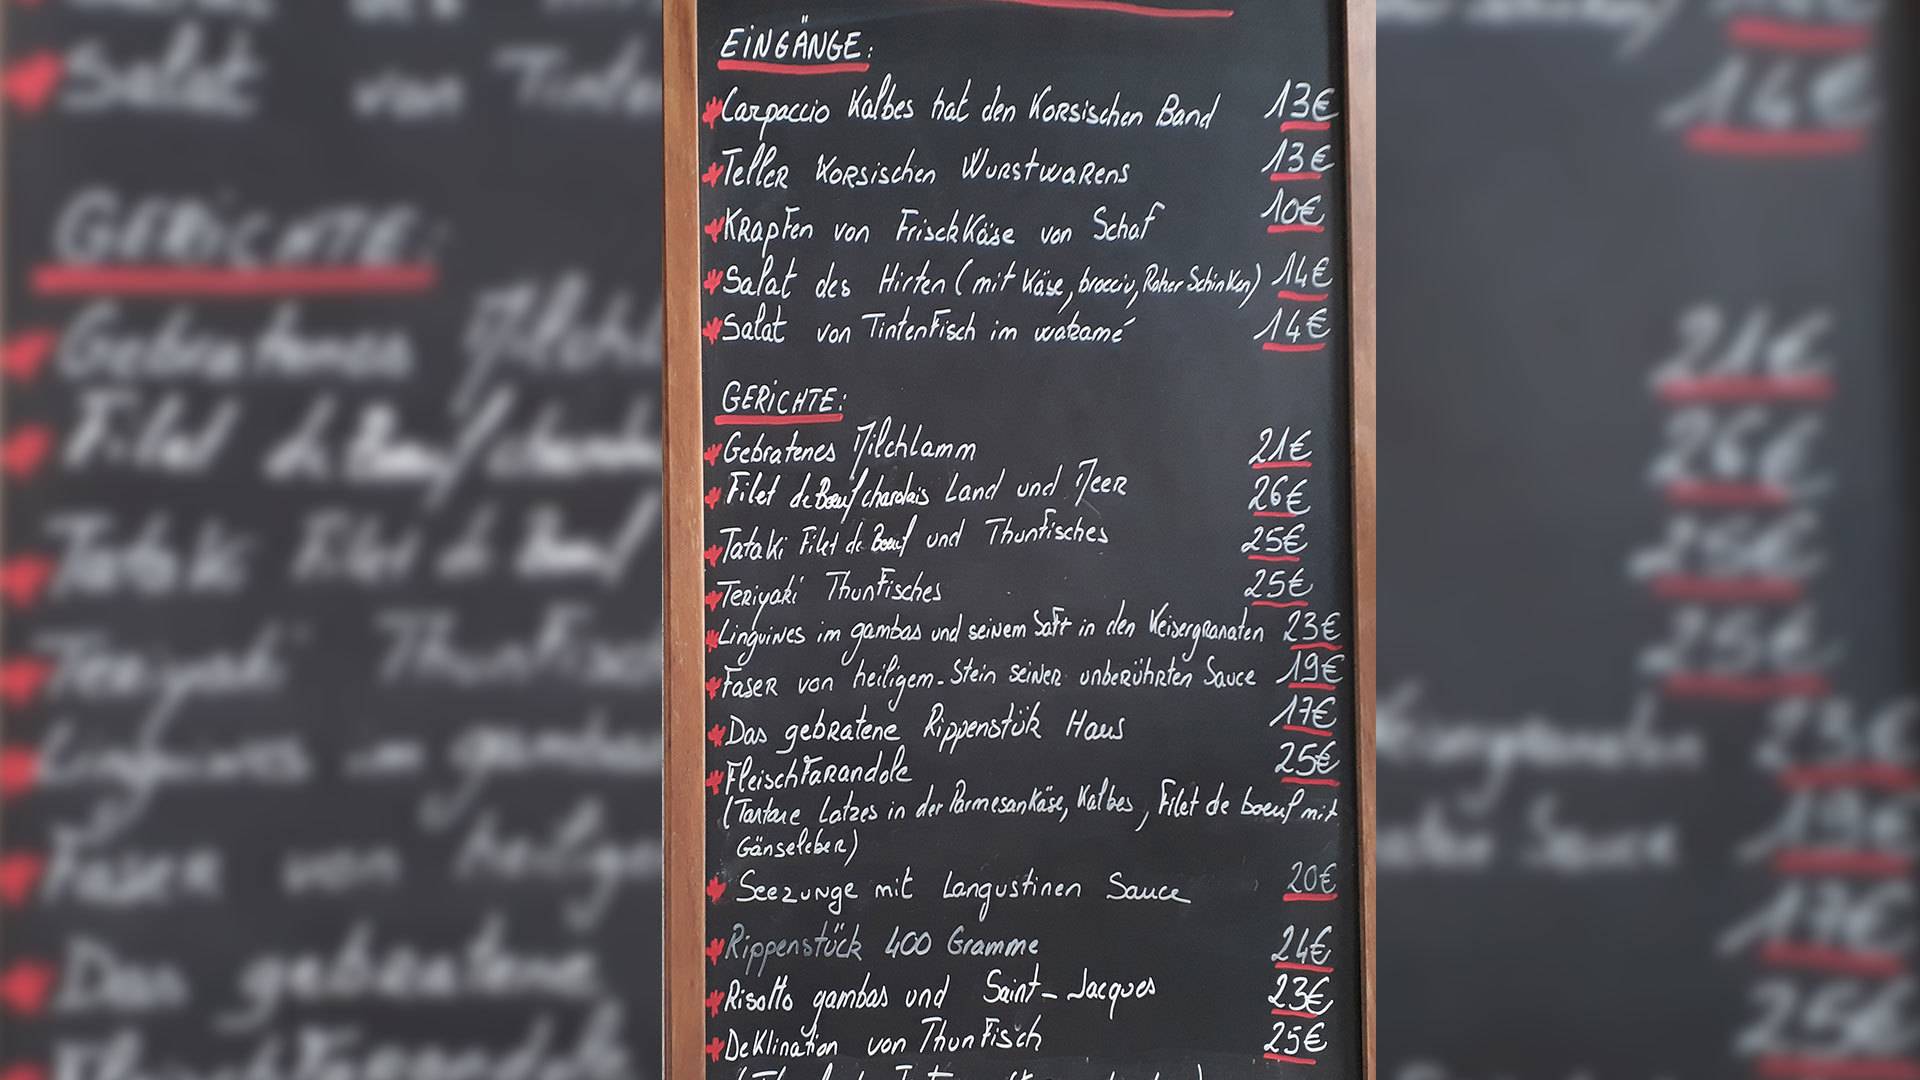 EINGÄNGE:
Carpaccio Kalbes hat den Korsischen Band 13€
Teller Korsischen Wurstwarens 13€
Krapfen von FrisckKäse von Schaf 10€
Salat des Hirten (mit Käse, brocciu, Roher Schinken) 14€
Salat von Tintenfisch im wakamé 14€
GERICHTE:
Gebratenes Milchlamm 21€
Filet de Boeuf charolais Land und Meer 26€
Tataki Filet de Boeuf und Thunfisches 25€
Teriyaki Thunfisches 25€
Linguines im gambas und seinem Saft in den Keisergranaten 23€
Faser von heiligem-Stein seiner unberührten Sauce 19€
Das gebratene Rippenstük Haus 17€
Fleischfarandole 25€
(Tartare Latzes in der Parmesankäse, Kalbes, Filet de boeuf mit
Gänseleber)
Seezunge mit Langustinen Sauce 20€
Rippenstück 400 Gramme 24€
Risotto gambas und Saint-Jacques 23€
Deklination von Thunfisch 25€